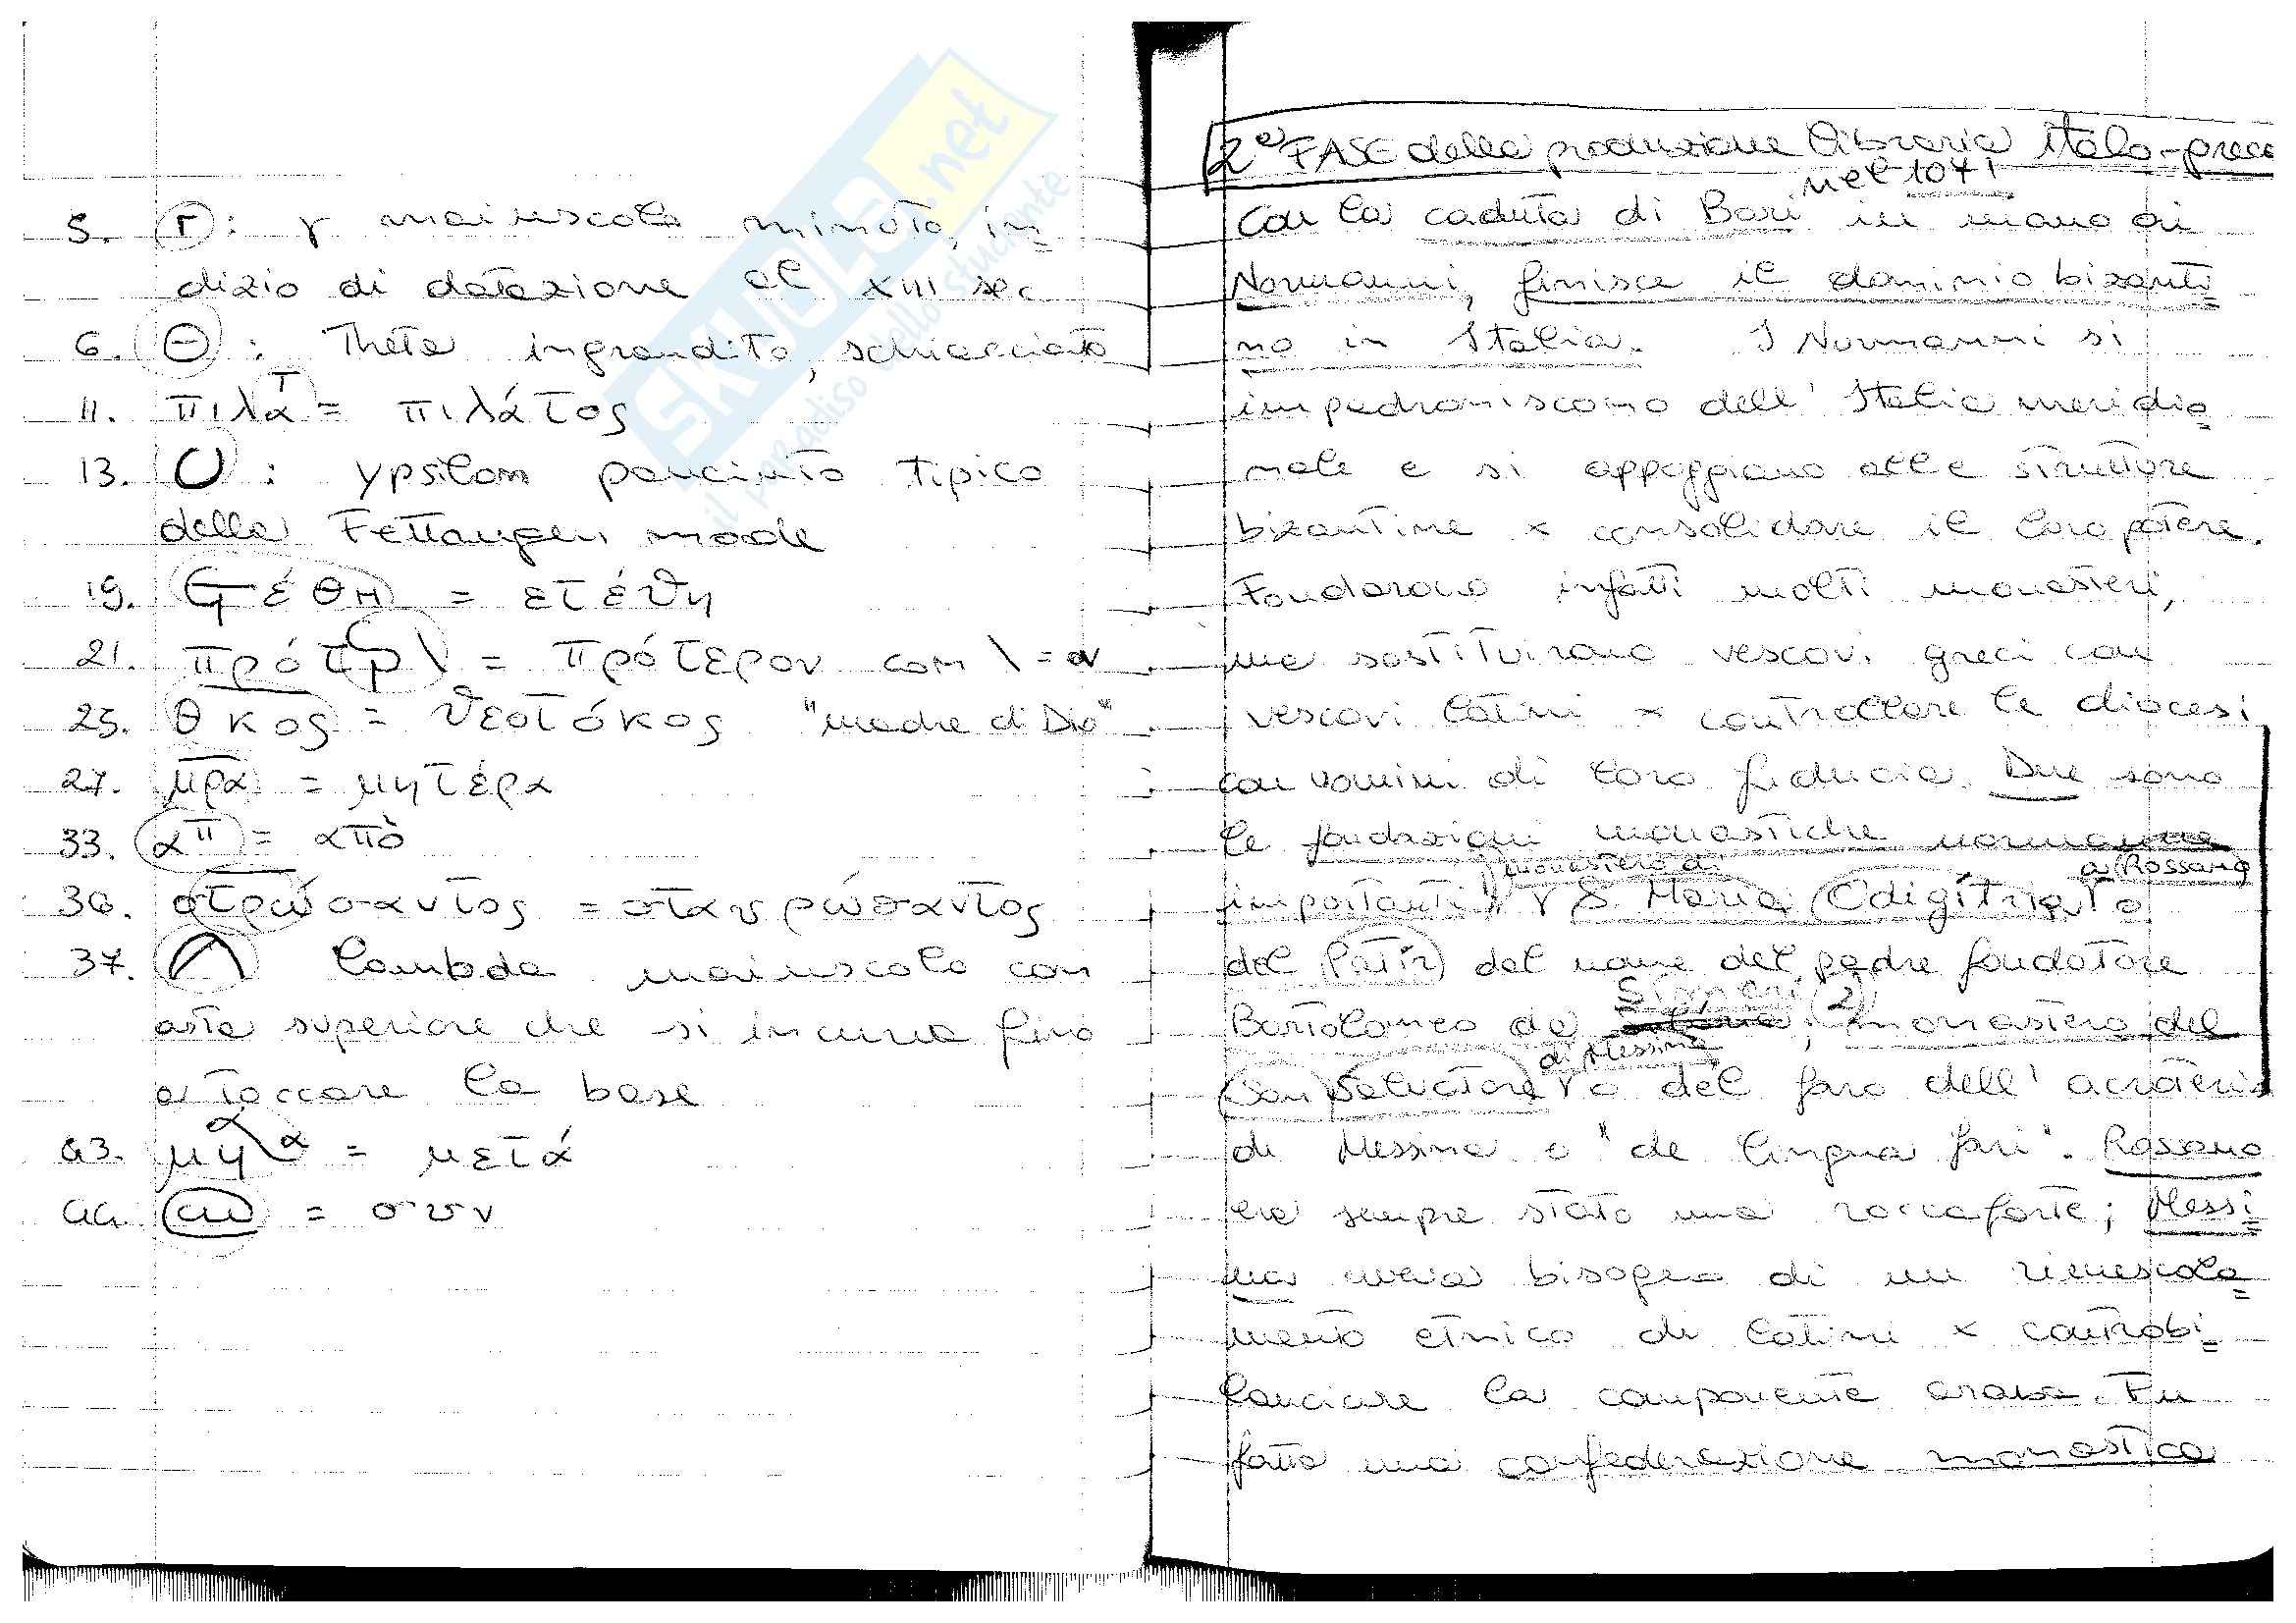 5. Γ : γ maiuscolo minuto, in=
dizio di datazione al XIII sec
6. Θ : Theta ingrandito, schiacciato
11. πιλα^τ = πιλάτος
13. U : ypsilon panciuto tipico
della Fettaugen mode
19. ετέθη = ετέθη
21. πρότερ\ = πρότερον con \ = ον
25. θκος = θεοτόκος "madre di Dio"
27. μρα = μητέρα
33. α^π = απὸ
36. στρώσαντος = σταυρώσαντος
37. Λ lambda maiuscolo con
asta superiore che si incurva fino
a toccare la base
43. = μετά
44. = συν
SKUOLA.net
il paradiso dello studente
2ª FASE della produzione libraria italo-greca
Con la caduta di Bari nel 1071 in mano ai
Normanni, finisce il dominio bizanti=
no in Italia. I Normanni si
impadroniscono dell' Italia meridio=
nale e si appoggiano alle strutture
bizantine x consolidare il loro potere.
Fondarono infatti molti monasteri,
ma sostituirono vescovi greci con
vescovi latini x controllare le diocesi
con uomini di loro fiducia. Due sono
le fondazioni monastiche normanne
importanti: 1) monastero di S. Maria Odigitria a Rossano o
del Patir dal nome del padre fondatore
Bartolomeo da Simeri; 2) monastero del
San Salvatore di Messina o del faro dell' acroterio
di Messina o "de lingua fari". Rossano
era sempre stata una roccaforte; Messi=
na aveva bisogno di un rimescola=
mento etnico di latini x controbi=
lanciare la componente araba. Fu
fatta una confederazione monastica